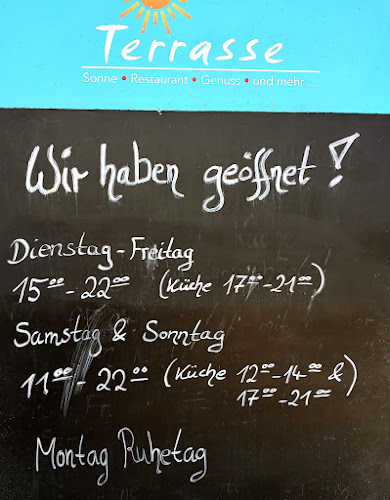 Terrasse
Sonne • Restaurant • Genuss • und mehr ...
Wir haben geöffnet!
Dienstag - Freitag
15⁰⁰ - 22⁰⁰ (Küche 17⁰⁰ - 21⁰⁰)
Samstag & Sonntag
11⁰⁰ - 22⁰⁰ (Küche 12⁰⁰ - 14⁰⁰ &
17⁰⁰ - 21⁰⁰)
Montag Ruhetag